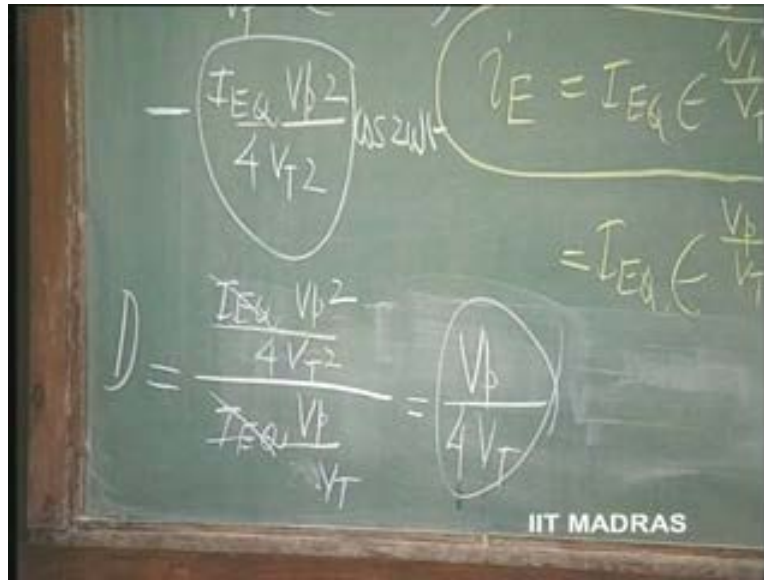 V_T
- I_EQ Vp2 / 4 V_T2 cos 2ωt
i_E = I_EQ ∈ Vi / V_T
= I_EQ ∈ Vp / V_T
D = I_EQ Vp2 / 4 V_T2 / I_EQ Vp / V_T = Vp / 4V_T
IIT MADRAS